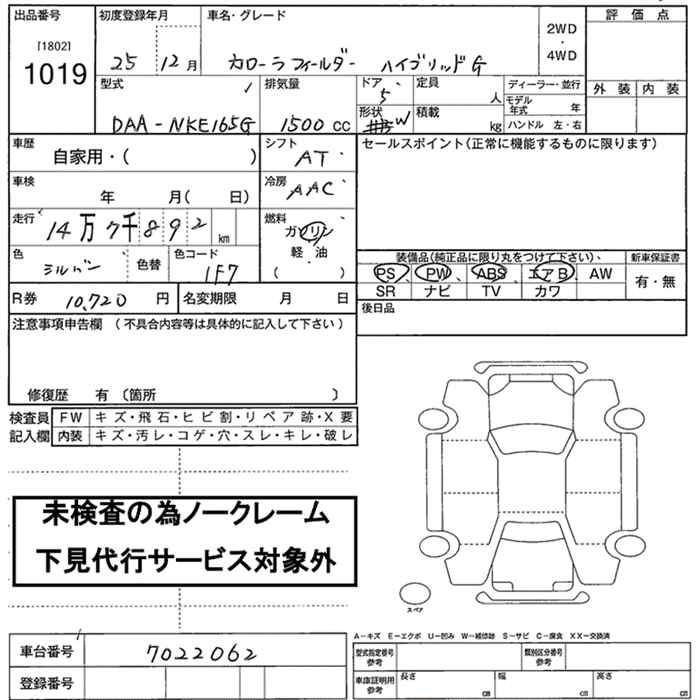 出品番号 初度登録年月 車名・グレード 評価点
[1802]
1019
25 12月 カローラフィールダー ハイブリッドG
2WD
・
4WD
外装 内装
型式 排気量 ドア 定員 ディーラー・並行
5 人 モデル年式 年
DAA-NKE165G 1500cc 形状 W 積載 kg ハンドル 左・右
車歴 自家用・( ) シフト AT セールスポイント(正常に機能するものに限ります)
車検 年 月( 日) 冷房 AAC
走行 14万7千892km 燃料 ガソリン
軽・油
( ・ )
色 シルバー 色替 色コード 1F7
装備品(純正品に限り丸をつけて下さい) 新車保証書
PS、PW、ABS、エアB、AW 有・無
SR ナビ TV カワ
R券 10,720円 名変期限 月 日 後日品
注意事項申告欄 (不具合内容等は具体的に記入して下さい)
修復歴 有 〔箇所 〕
検査員 FW キズ・飛石・ヒビ割・リペア跡・X要
記入欄 内装 キズ・汚レ・コゲ・穴・スレ・キレ・破レ
未検査の為ノークレーム
下見代行サービス対象外
スペア
A-キズ E-エクボ U-凹み W-補修跡 S-サビ C-腐食 XX-交換済
車台番号 7022062 型式指定番号 参考 類別区分番号 参考
登録番号 車庫証明用 参考 長さ cm 幅 cm 高さ cm